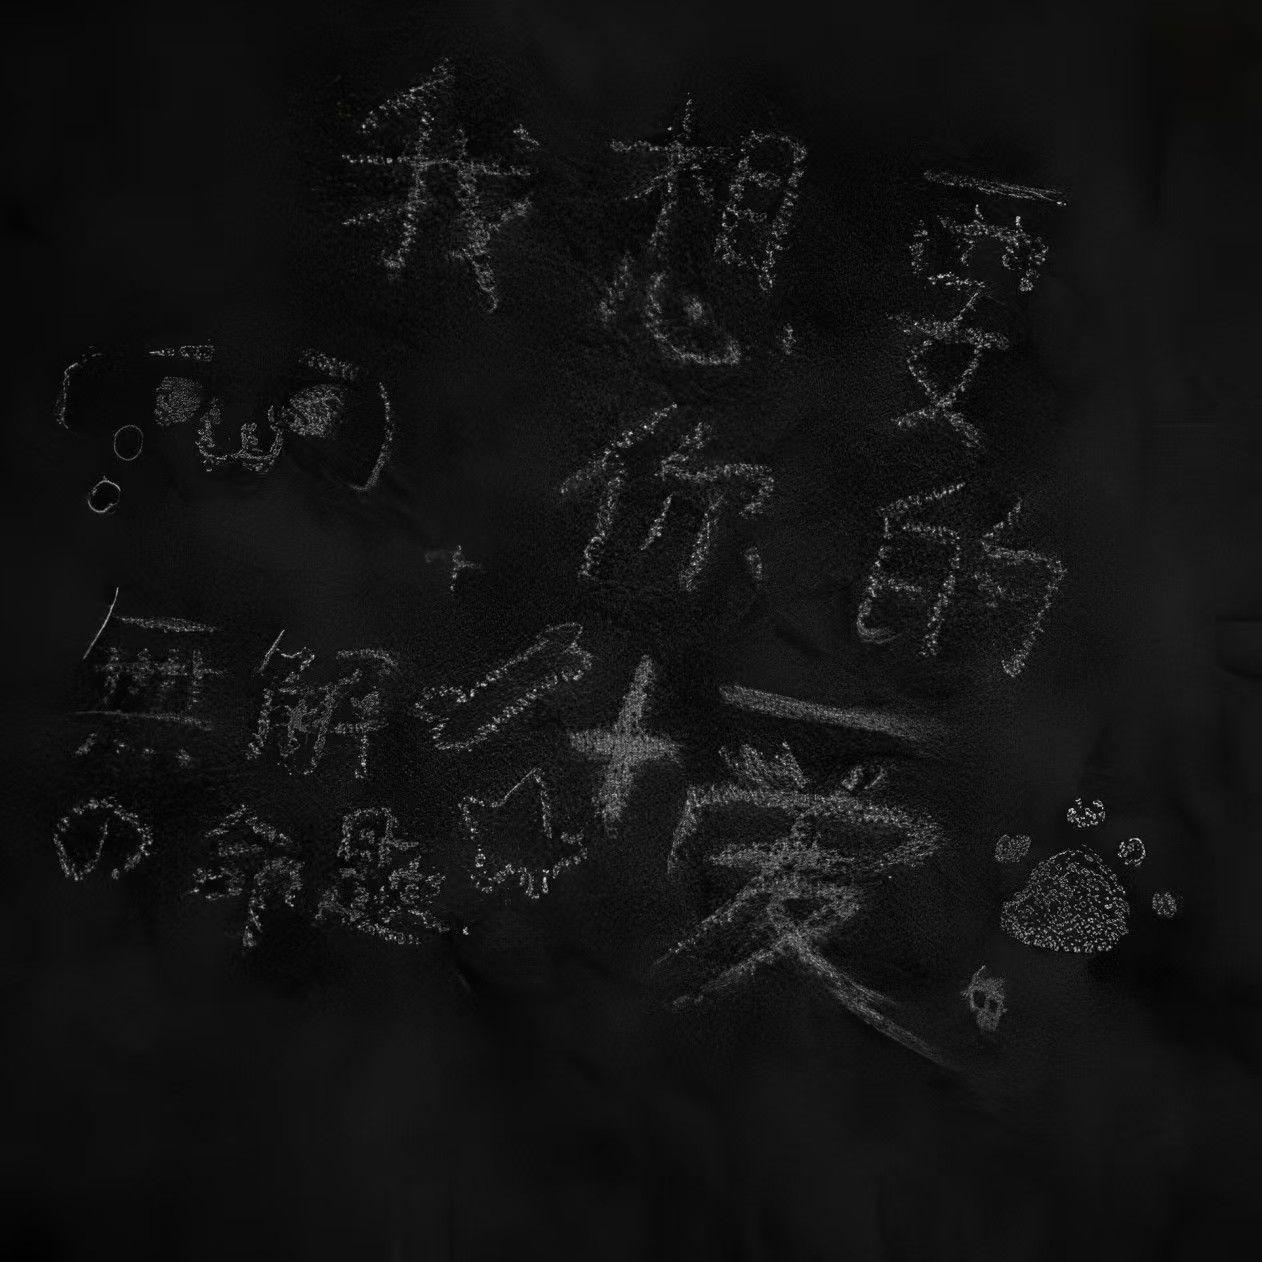 我想要
你的
無解
的命題
愛